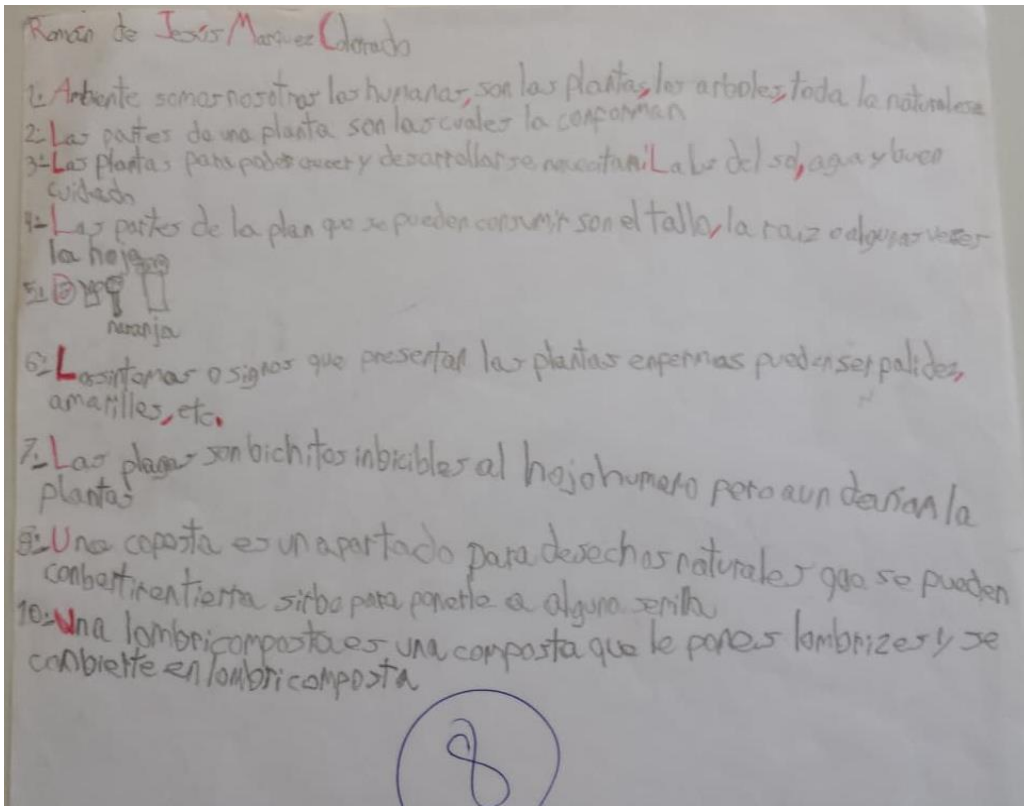 Román de Jesús Marquez Colorado
1:- Anbente somos nosotros los humanos, son las plantas, los arboles, toda la naturalesa
2:- Las partes de una planta son las cuales la conforman
3:- Las plantas para poder crecer y desarrollarse nececitan: La lus del sol, agua y buen
cuidado
4:- Las partes de la plan que se pueden consumir son el tallo, la raiz o algunas veces
la hoja
5:-
naranja
6:- Los sintomas o signos que presentan las plantas enfermas pueden ser palidez,
amarilles, etc.
7:- Las plagas son bichitos inbicibles al hojo humano pero aun dañan la
plantas
8:- Una coposta es un apartado para desechos naturales que se pueden
conbertir en tierra sirbe para ponerle a alguna semilla
10:- Una lombricomposta es una composta que le pones lombrizes y se
conbierte en lombricomposta
8